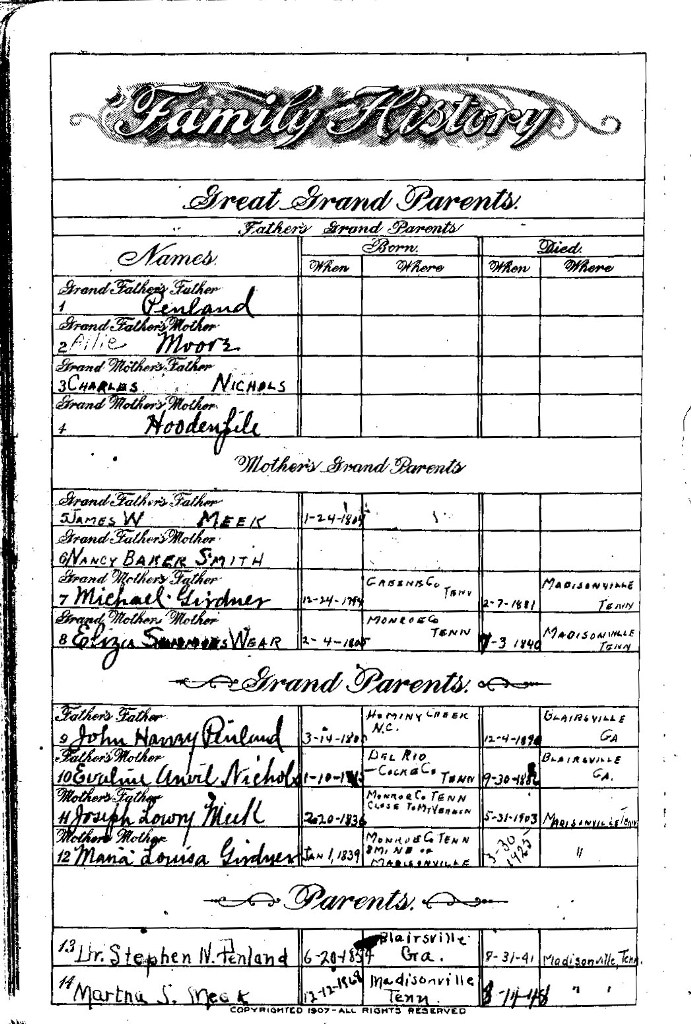 Family History
Great Grand Parents.
Father's Grand Parents
Names. Born. Died.
When Where When Where
Grand Father's Father
1 Penland
Grand Father's Mother
2 Ailie Moore
Grand Mother's Father
3 CHARLES NICHOLS
Grand Mother's Mother
4 Hoodenpile
Mother's Grand Parents
Grand Father's Father
5 JAMES W MEEK 1-24-
Grand Father's Mother
6 NANCY BAKER SMITH
Grand Mother's Father GREENE CO MADISONVILLE
7 Michael Girdner 12-24- TENN 2-7-1881 TENN
Grand Mother's Mother MONROE CO MADISONVILLE
8 Eliza WEAR 2-4- TENN -3 1840 TENN
Grand Parents.
Father's Father HOMINY CREEK BLAIRSVILLE
9 John Henry Penland 3-14- N.C. 12-4- GA
Father's Mother DEL RIO BLAIRSVILLE
10 Evaline Anvil Nichols 1-10- COCKE CO TENN 9-30- GA.
Mother's Father MONROE CO TENN
11 Joseph Lowry Meek 2-20-1836 CLOSE TO MT VERNON 5-31-1903 MADISONVILLE Tenn
Mother's Mother MONROE CO TENN
12 Maria Louisa Girdner JAN 1, 1839 8 MI NE OF MADISONVILLE 3-30 1925 "
Parents.
13 Dr. Stephen N. Penland 6-20-1854 Blairsville Ga. 8-31-41 Madisonville, Tenn.
14 Martha S. Meek 12-12-1868 Madisonville Tenn 8-14-48 " "
COPYRIGHTED 1907-ALL RIGHTS RESERVED